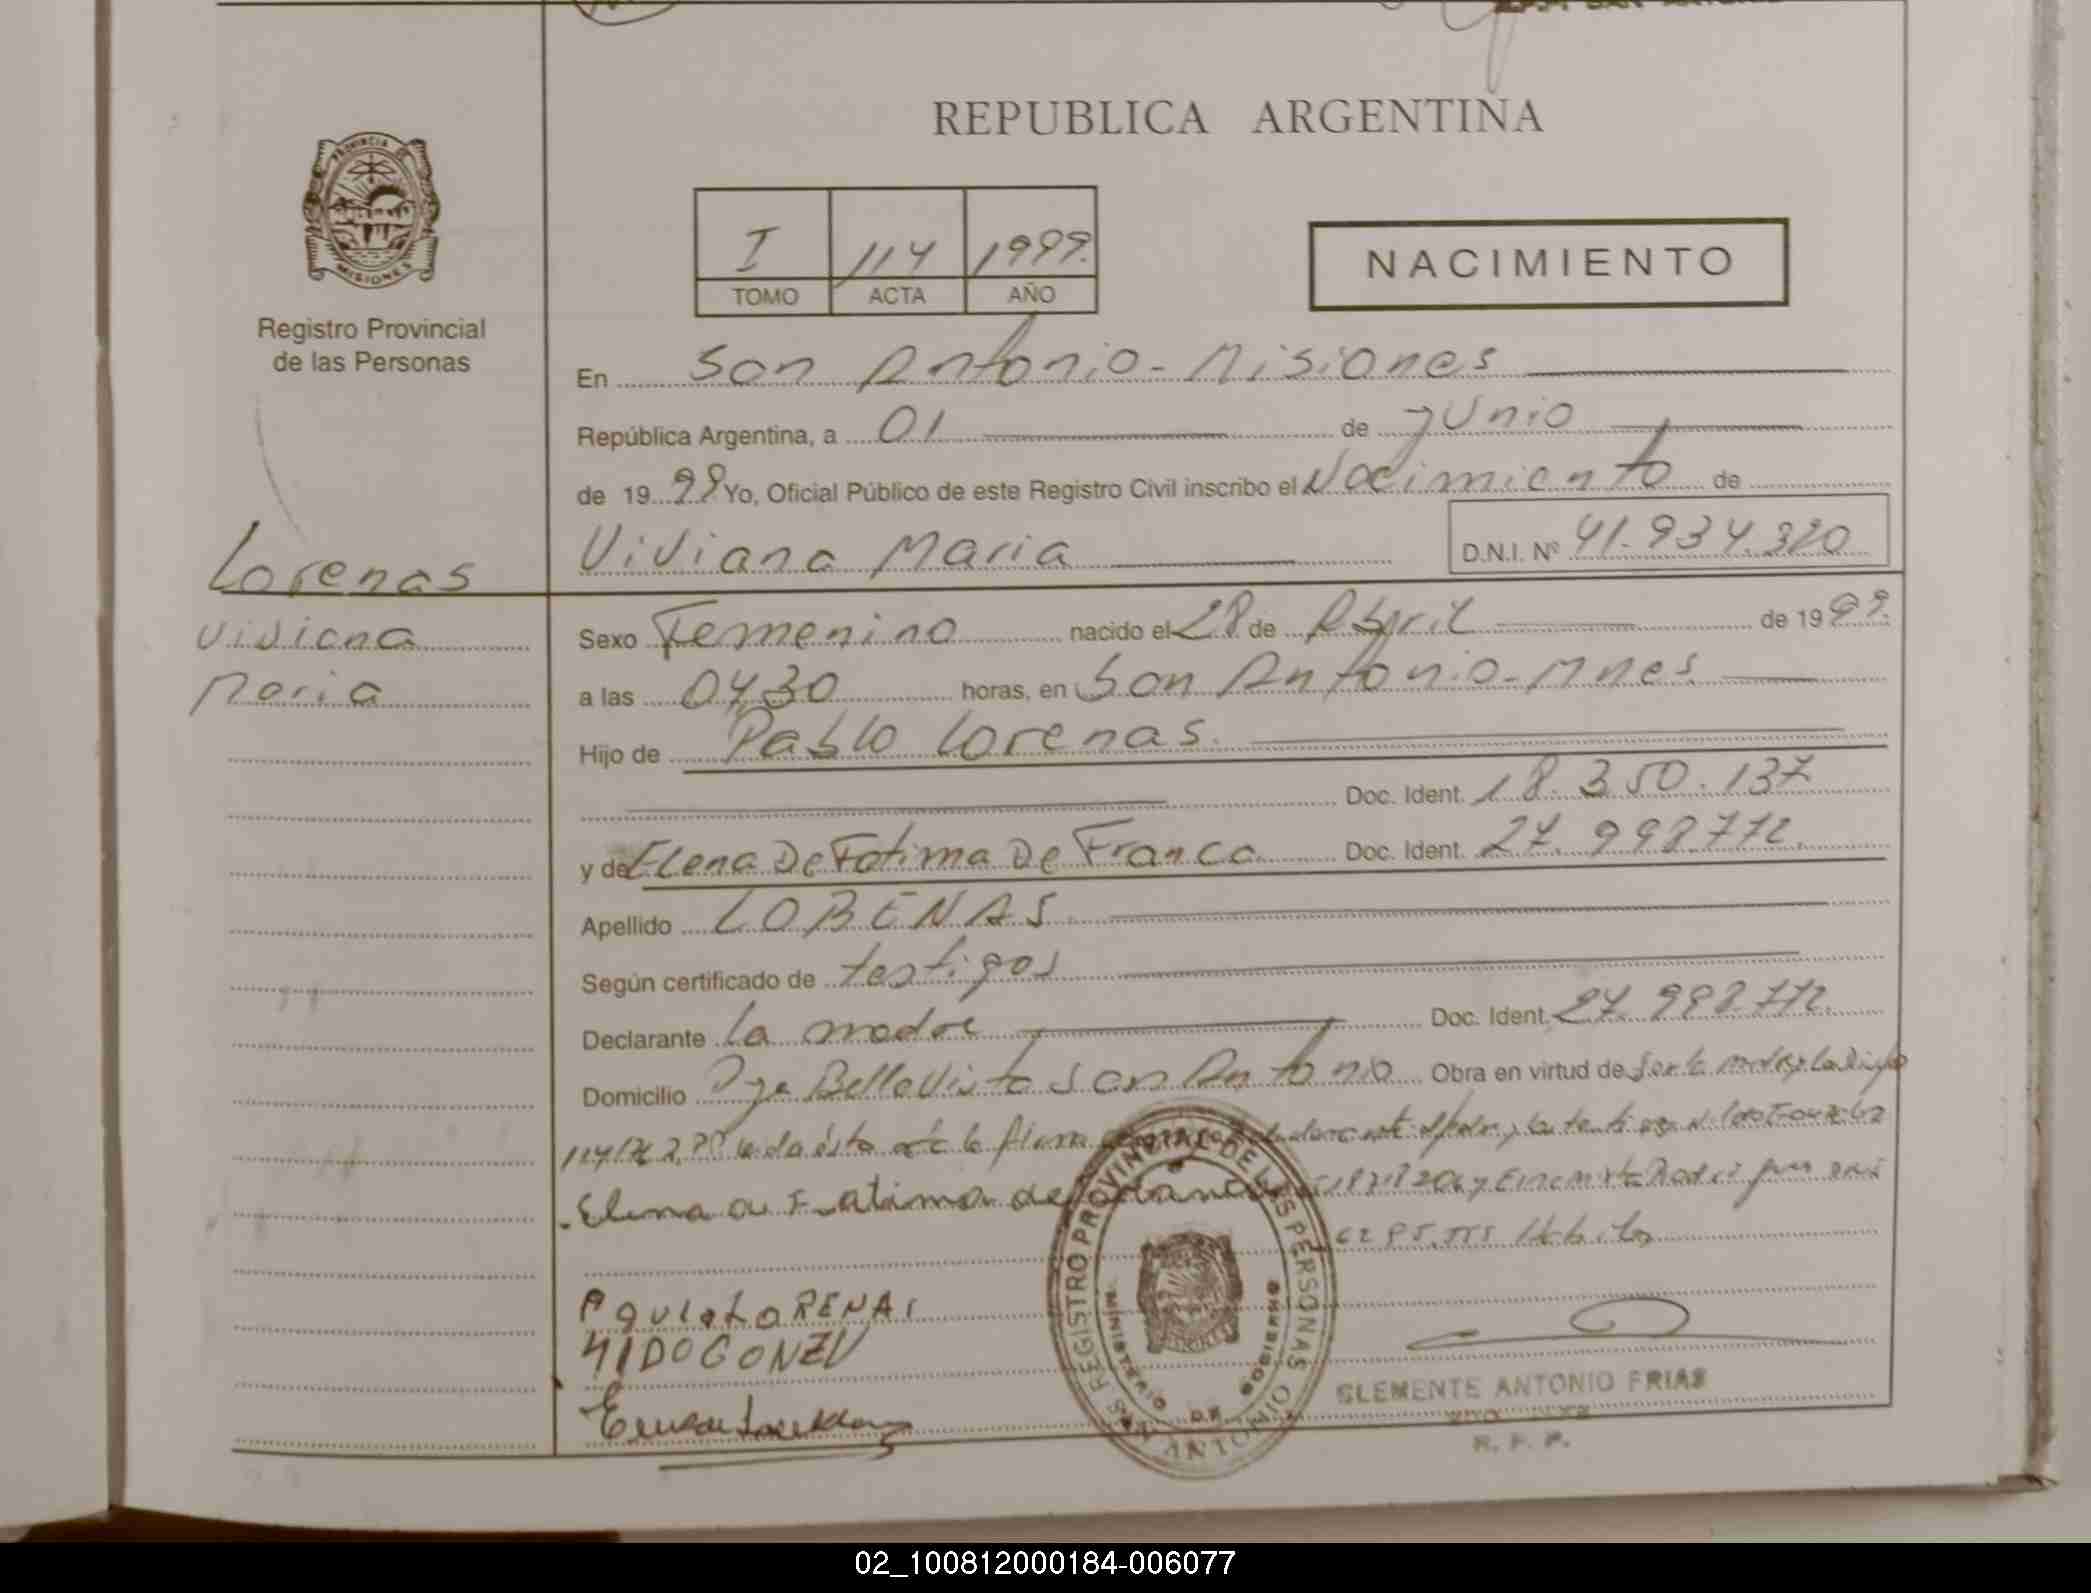 REPUBLICA ARGENTINA
PROVINCIA DE
MISIONES
Registro Provincial
de las Personas
I 114 1999.
TOMO ACTA AÑO
NACIMIENTO
En San Antonio - Misiones
República Argentina, a 01 de junio
de 1999 Yo, Oficial Público de este Registro Civil inscribo el Nacimiento de
Viviana Maria D.N.I. Nº 41.934.320
Lorenas
Viviana
Maria
Sexo Femenino nacido el 28 de Abril de 1999.
a las 04,30 horas, en San Antonio - Mnes
Hijo de Pablo Lorenas.
Doc. Ident. 18.350.137
y de Elena De Fatima De Franca Doc. Ident. 27.998.772.
Apellido LORENAS
Según certificado de testigos
Declarante La madre Doc. Ident. 27.998.772.
Domicilio Bella Vista San Antonio Obra en virtud de
la firma
Elena de Fatima de
REGISTRO PROVINCIAL DE LAS PERSONAS
MINISTERIO DE GOBIERNO
SAN ANTONIO
CLEMENTE ANTONIO FRIAS
R. P. P.
02_100812000184-006077